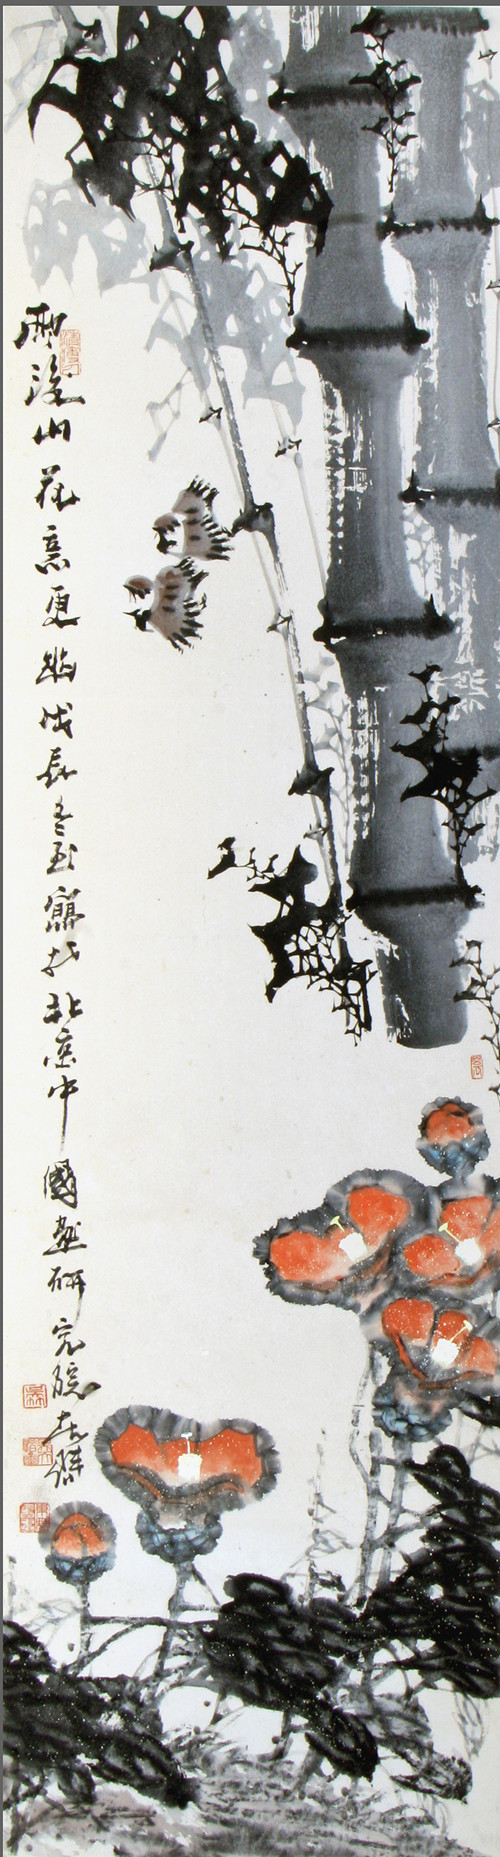 雨後山花意更幽戊辰冬至寫於北京中國畫研究院